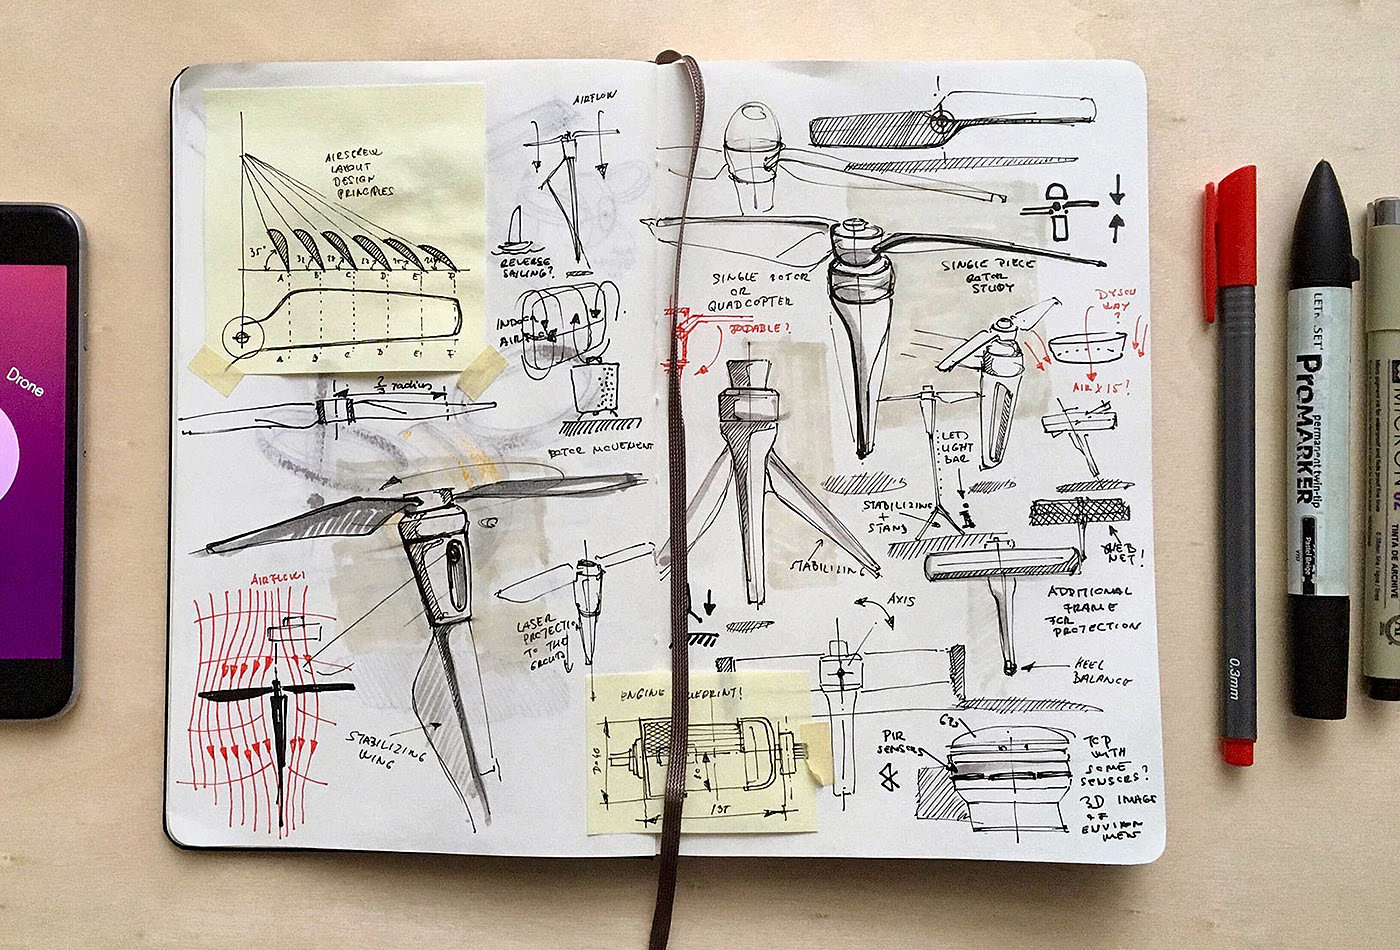 Drone
AIRSCREW
LAYOUT
DESIGN
PRINCIPLES
35°
A B C D E F
A B' C' D' E' F'
AIRFLOW
REVERSE
SAILING?
INDOOR
2/3 radius
ROTOR MOVEMENT
AIRFLOW!
STABILIZING
WING
LASER
PROTECTION
TO THE
GROUND
SINGLE ROTOR
OR
QUADCOPTER
FOLDABLE?
SINGLE PIECE
ROTOR
STUDY
DYSON
WAY
?
AIR X 15?
LED
LIGHT
BAR
STABILIZING
+
STAND
STABILIZING
WEB
NET!
ADDITIONAL
FRAME
FOR
PROTECTION
AXIS
KEEL
BALANCE
ENGINE BLUEPRINT!
135
PIR
SENSORS
TOP
WITH
SOME
SENSORS?
3D IMAGE
OF
ENVIRON
MENT
0.3mm
LETRASET
PROMARKER
permanent twin-tip